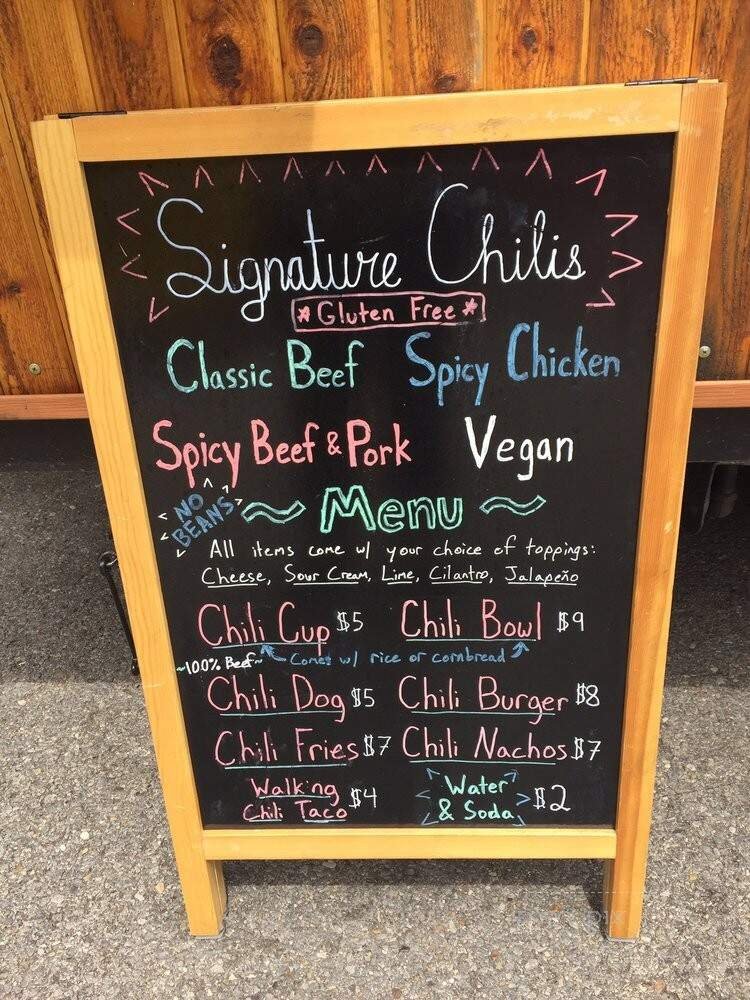 Signature Chilis
* Gluten Free *
Classic Beef Spicy Chicken
Spicy Beef & Pork Vegan
NO BEANS
~ Menu ~
All items come w/ your choice of toppings:
Cheese, Sour Cream, Lime, Cilantro, Jalapeño
Chili Cup $5 Chili Bowl $9
Comes w/ rice or cornbread
~100% Beef~
Chili Dog $5 Chili Burger $8
Chili Fries $7 Chili Nachos $7
Walking Chili Taco $4 Water & Soda $2